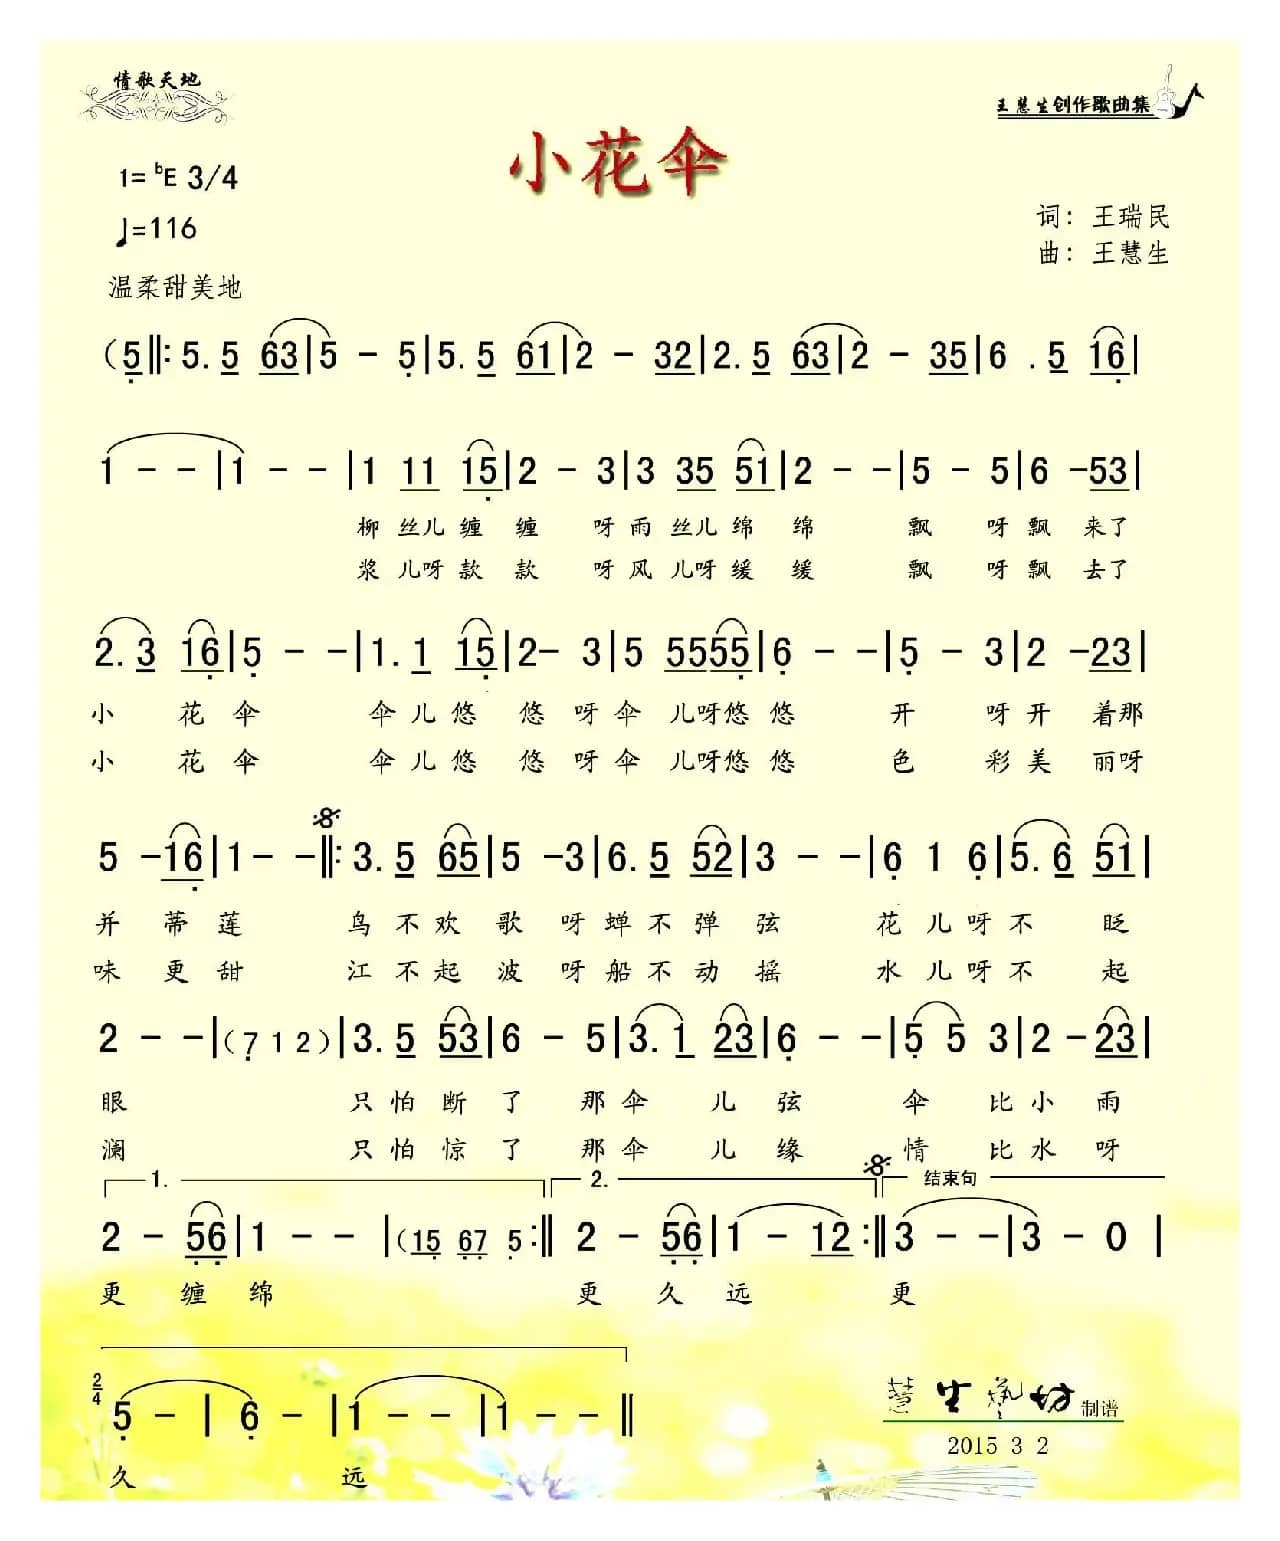 情歌天地
王慧生创作歌曲集
小花伞
1= bE 3/4
♩=116
词：王瑞民
曲：王慧生
温柔甜美地
(5‖: 5. 5 63|5 - 5|5. 5 61|2 - 32|2. 5 63|2 - 35|6 . 5 16|
1 - -|1 - -|1 11 15|2 - 3|3 35 51|2 - -|5 - 5|6 -53|
柳 丝儿 缠 缠 呀 雨 丝儿 绵 绵 飘 呀 飘 来了
浆 儿呀 款 款 呀 风 儿呀 缓 缓 飘 呀 飘 去了
2. 3 16|5 - -|1. 1 15|2- 3|5 5555|6 - -|5 - 3|2 -23|
小 花 伞 伞 儿 悠 悠 呀 伞 儿呀悠 悠 开 呀 开 着那
小 花 伞 伞 儿 悠 悠 呀 伞 儿呀悠 悠 色 彩 美 丽呀
5 -16|1- -‖: 3. 5 65|5 -3|6. 5 52|3 - -|6 1 6|5. 6 51|
并 蒂 莲 鸟 不 欢 歌 呀 蝉 不 弹 弦 花 儿 呀 不 眨
味 更 甜 江 不 起 波 呀 船 不 动 摇 水 儿 呀 不 起
2 - -|(7 1 2)|3. 5 53|6 - 5|3. 1 23|6 - -|5 5 3|2 -23|
眼 只 怕 断 了 那 伞 儿 弦 伞 比 小 雨
澜 只 怕 惊 了 那 伞 儿 缘 情 比 水 呀
1. 2. 结束句
2 - 56|1 - -|(15 67 5:‖ 2 - 56|1 - 12:‖3 - -|3 - 0|
更 缠 绵 更 久 远 更
2/4 5 -|6 -|1 -|1 -‖
久 远
慧生艺坊 制谱
2015 3 2